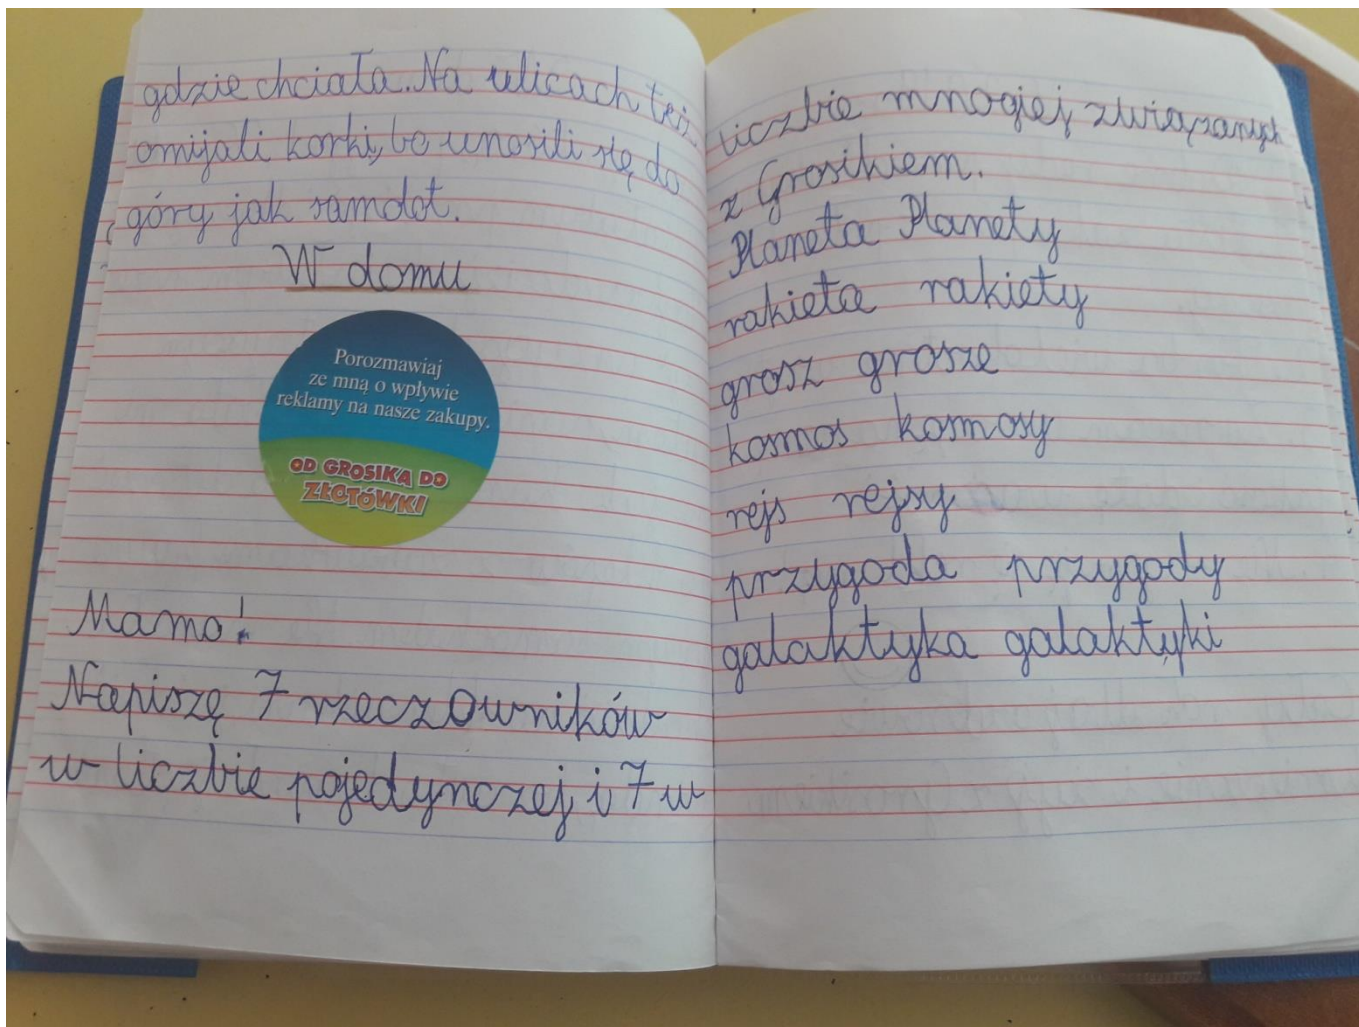 gdzie chciała. Na ulicach też
omijali korki, bo unosili się do
góry jak samolot.
W domu
Porozmawiaj
ze mną o wpływie
reklamy na nasze zakupy.
OD GROSIKA DO
ZŁOTÓWKI
Mamo!
Napiszę 7 rzeczowników
w liczbie pojedynczej i 7 w
liczbie mnogiej związanych
z Grosikiem.
Planeta Planety
rakieta rakiety
grosz grosze
kosmos kosmosy
rejs rejsy
przygoda przygody
galaktyka galaktyki